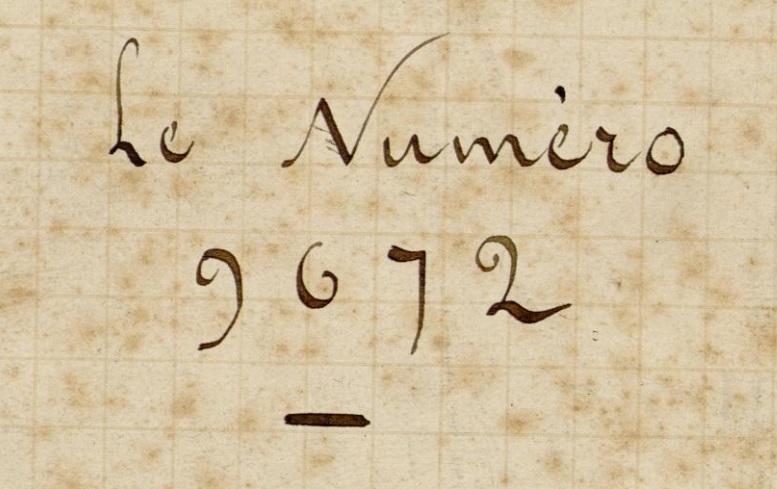 Le Numéro
9672